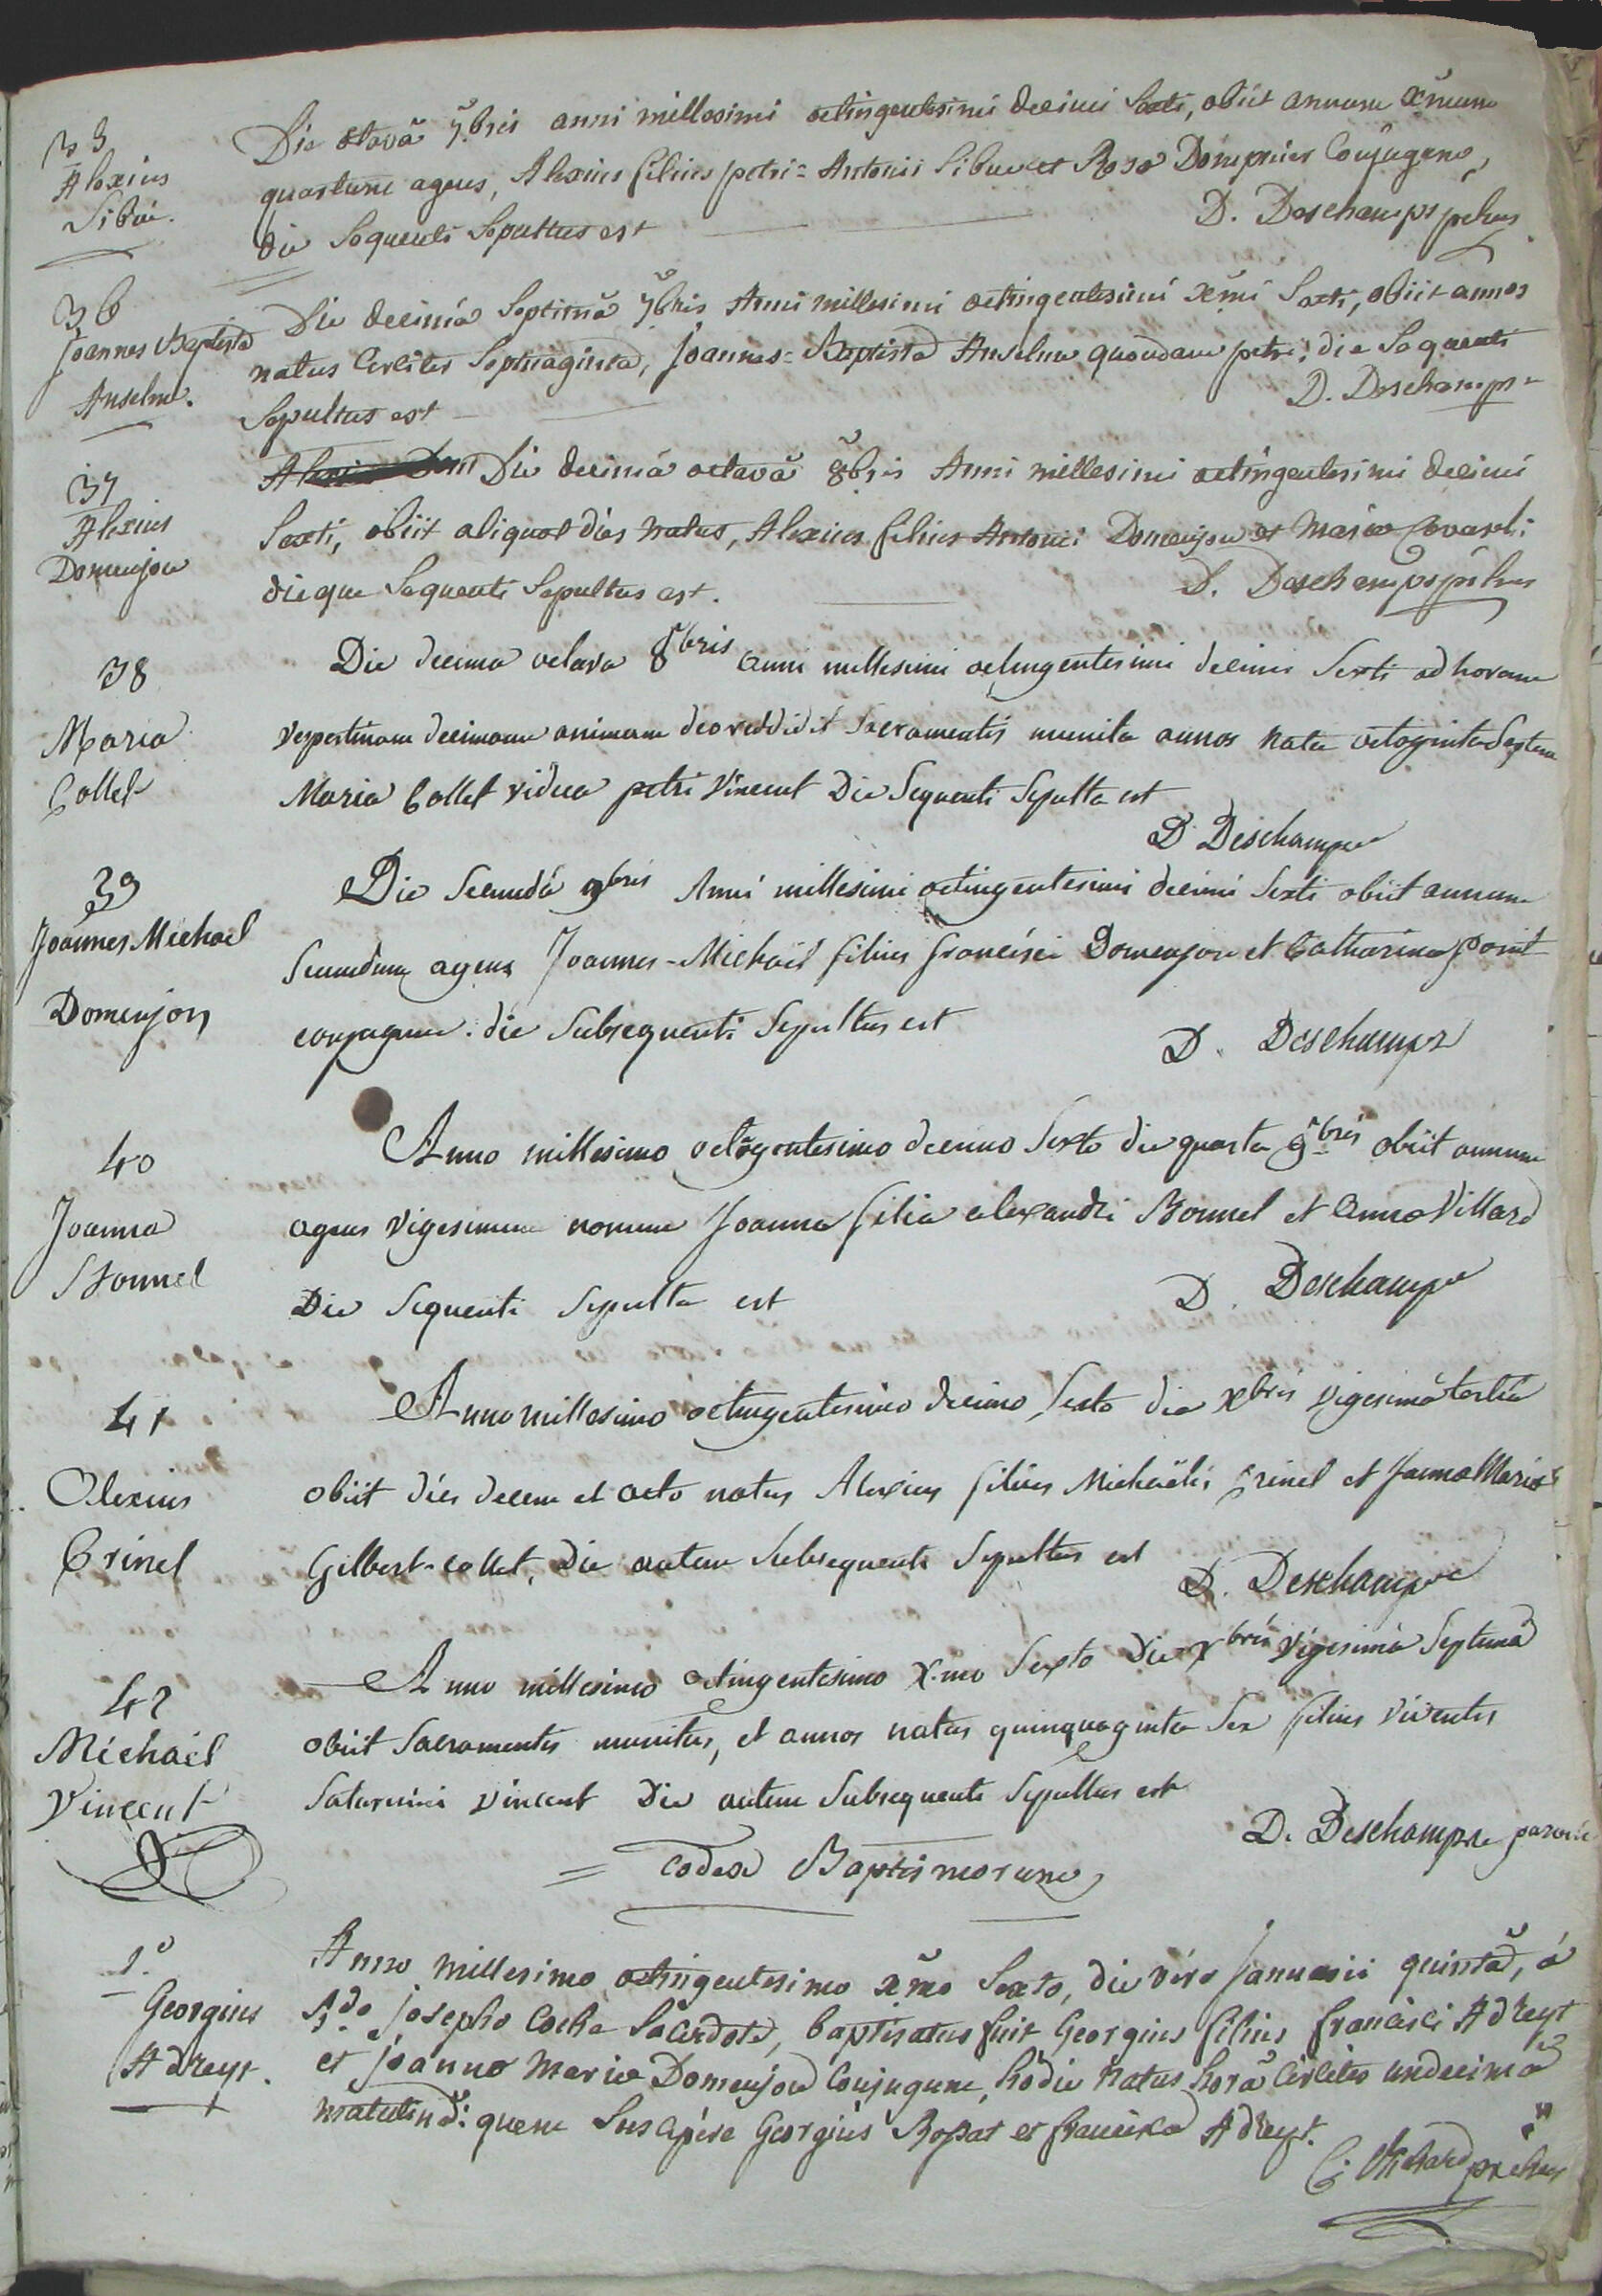 35
Alexius
Sibué.
Die octavâ 7bris anni millesimi octingentesimi decimi Sexti, obiit annum xmum
quartum agens, Alexius filius petri=Antonii Sibué et Rosæ Dompnier Conjugum,
die Sequenti Sepultus est
D. Deschamps pbter
36
Joannes Baptista
Anselme.
Die decimâ Septimâ 7bris Anni millesimi octingentesimi xmi Sexti, obiit annos
natus Circiter Septuaginta, Joannes=Baptista Anselme quondam petri; die Sequenti
Sepultus est
D. Deschamps
37
Alexius
Domenjon
Die decimâ octavâ 8bris Anni millesimi octingentesimi decimi
Sexti, obiit aliquot dies natus, Alexius filius Antonii Domenjon et Mariæ
dieque Sequenti Sepultus est.
D. Deschamps pbter
38
Maria
Collet
Die decima octava 8bris anni millesimi octingentesimi decimi Sexti ad horam
vespertinam decimam animam deo reddidit Sacramentis munita annos nata octoginta Septem
Maria Collet vidua petri Vincent Die Sequenti Sepulta est
D. Deschamps
39
Joannes Michael
Domenjon
Die Secundâ 9bris Anni millesimi octingentesimi decimi Sexti obiit annum
Secundum agens Joannes-Michaël filius francisci Domenjon et Catharinæ
conjugum. die Subsequenti Sepultus est
D. Deschamps
40
Joanna
Bonnel
Anno millesimo octingentesimo decimo Sexto die quarta 9bris obiit annum
agens vigesimum nonum Joanna filia alexandri Bonnel et Annæ Villard
Die Sequenti Sepulta est
D. Deschamps
41
Alexius
Crinel
Anno millesimo octingentesimo decimo Sexto die xbris vigesimâ tertiâ
obiit dies decem et octo natus Alexius filius Michaëlis Crinel et Joannæ Mariæ
Gilbert-collet, Die autem Subsequenti Sepultus est
D. Deschamps
42
Michaël
Vincent
Anno millesimo octingentesimo X.mo Sexto Die xbris vigesimâ Septimâ
obiit Sacramentis munitus, et annos natus quinquaginta Sex filius viventis
Saturnini Vincent Die autem Subsequenti Sepultus est
D. Deschamps
= Codex Baptismorum
1.º
Georgius
Adreyt.
Anno millesimo octingentesimo xmo Sexto, die vero Januarii quintâ, á
Rdo josepho Coche Sacerdote, baptisatus fuit Georgius filius francisci Adreyt
et joannæ Mariæ Domenjod Conjugum, hodie natus horâ Circiter undecimâ
matutinâ: quem Suscepére Georgius Rostat et francisca Adreyt.